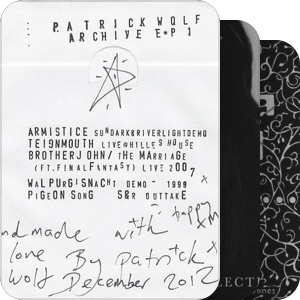 PATRICK WOLF
ARCHIVE E•P 1
ARMISTICE SUNDARK&RIVERLIGHTDEMO
TEIGNMOUTH LIVE@HILLES HOUSE
BROTHERJOHN/THE MARRIAGE
(FT.FINALFANTASY) LIVE 2007
WALPURGISNACHT DEMO - 1999
PIGEON SONG S&R OUTTAKE
ndmade with happy
love By Patrick
Wolf December 2012
LECTI
ones